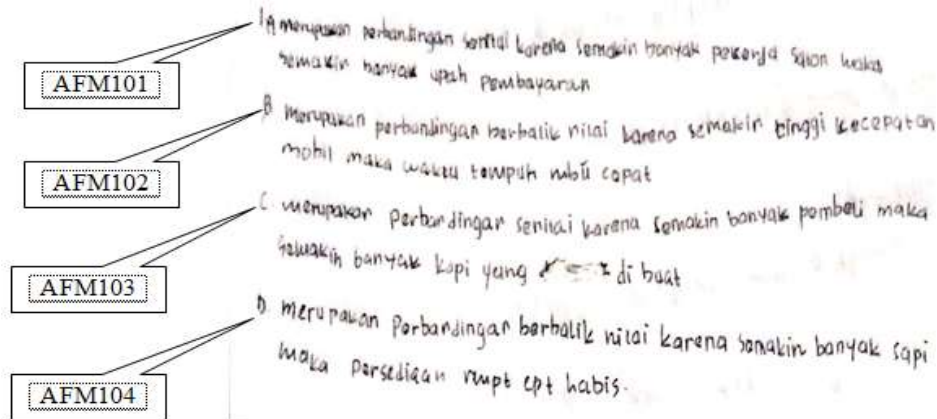 1. A merupakan perbandingan senilai karena semakin banyak pekerja salon maka
semakin banyak upah pembayaran
AFM101
B. merupakan perbandingan berbalik nilai karena semakin tinggi kecepatan
mobil maka waktu tempuh cepat
AFM102
C. merupakan perbandingan senilai karena semakin banyak pembeli maka
semakin banyak kopi yang di buat
AFM103
D. merupakan perbandingan berbalik nilai karena semakin banyak sapi
maka persediaan rumpt cpt habis.
AFM104